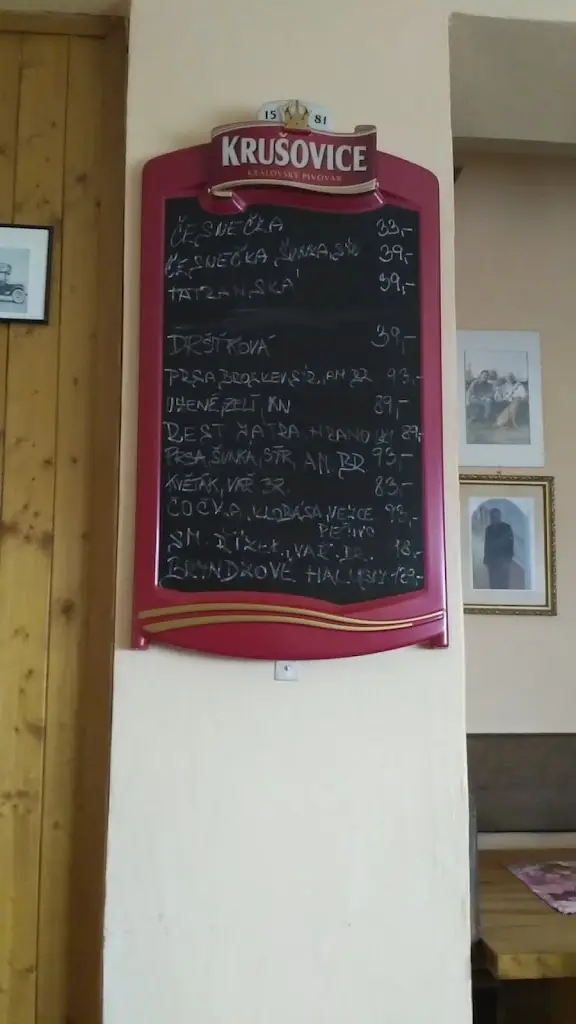 15 81
KRUŠOVICE
KRÁLOVSKÝ PIVOVAR
ČESNEČKA 33,-
ČESNEČKA, ŠUNKA, SÝR 39,-
TATRANSKÁ 39,-
DRŠŤKOVÁ 39,-
PRSA, BROSKEV, SÝR, AM. BR 93,-
UZENÉ, ZELÍ, KN 89,-
REST JÁTRA, HRANOLKY 89,-
PRSA, ŠUNKA, SÝR, AM. BR 93,-
KVĚTÁK, VAŘ. BR. 83,-
ČOČKA, KLOBÁSA, VEJCE 93,-
PEČIVO
SM. ŘÍZEK, VAŘ. BR.
BRYNDZOVÉ HALUŠKY 129,-